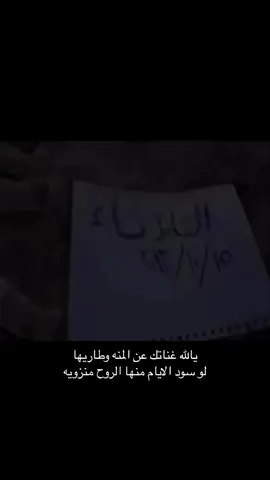 يالله غناتك عن المنه وطاريها
لو سود الايام منها الروح منزويه